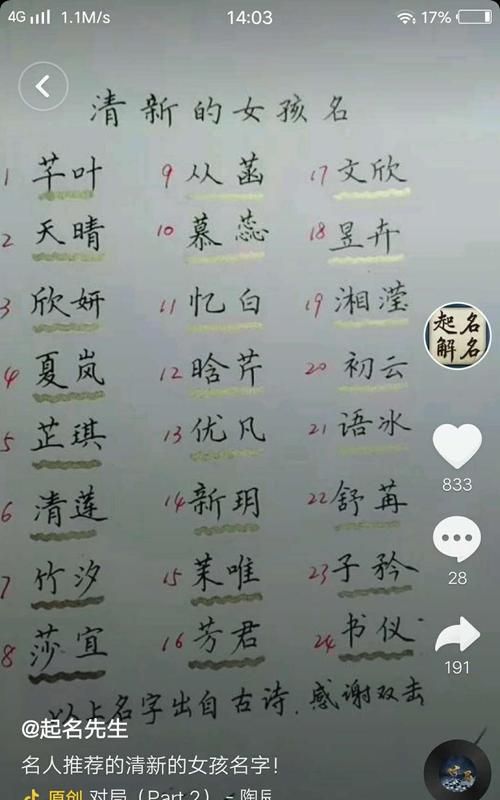 4G 1.1M/s 14:03 17%
清新的女孩名
1 芊叶 9 从菡 17 文欣
2 天晴 10 慕蕊 18 昱卉
3 欣妍 11 忆白 19 湘滢
4 夏岚 12 晗芹 20 初云
5 芷琪 13 优凡 21 语冰
6 清莲 14 新玥 22 舒苒
7 竹汐 15 茉唯 23 子矜
8 莎宜 16 芳君 24 书仪
以上名字出自古诗.感谢双击
起名
解名
833
28
191
@起名先生
名人推荐的清新的女孩名字!
原创 对局 (Part 2) - 陶辰